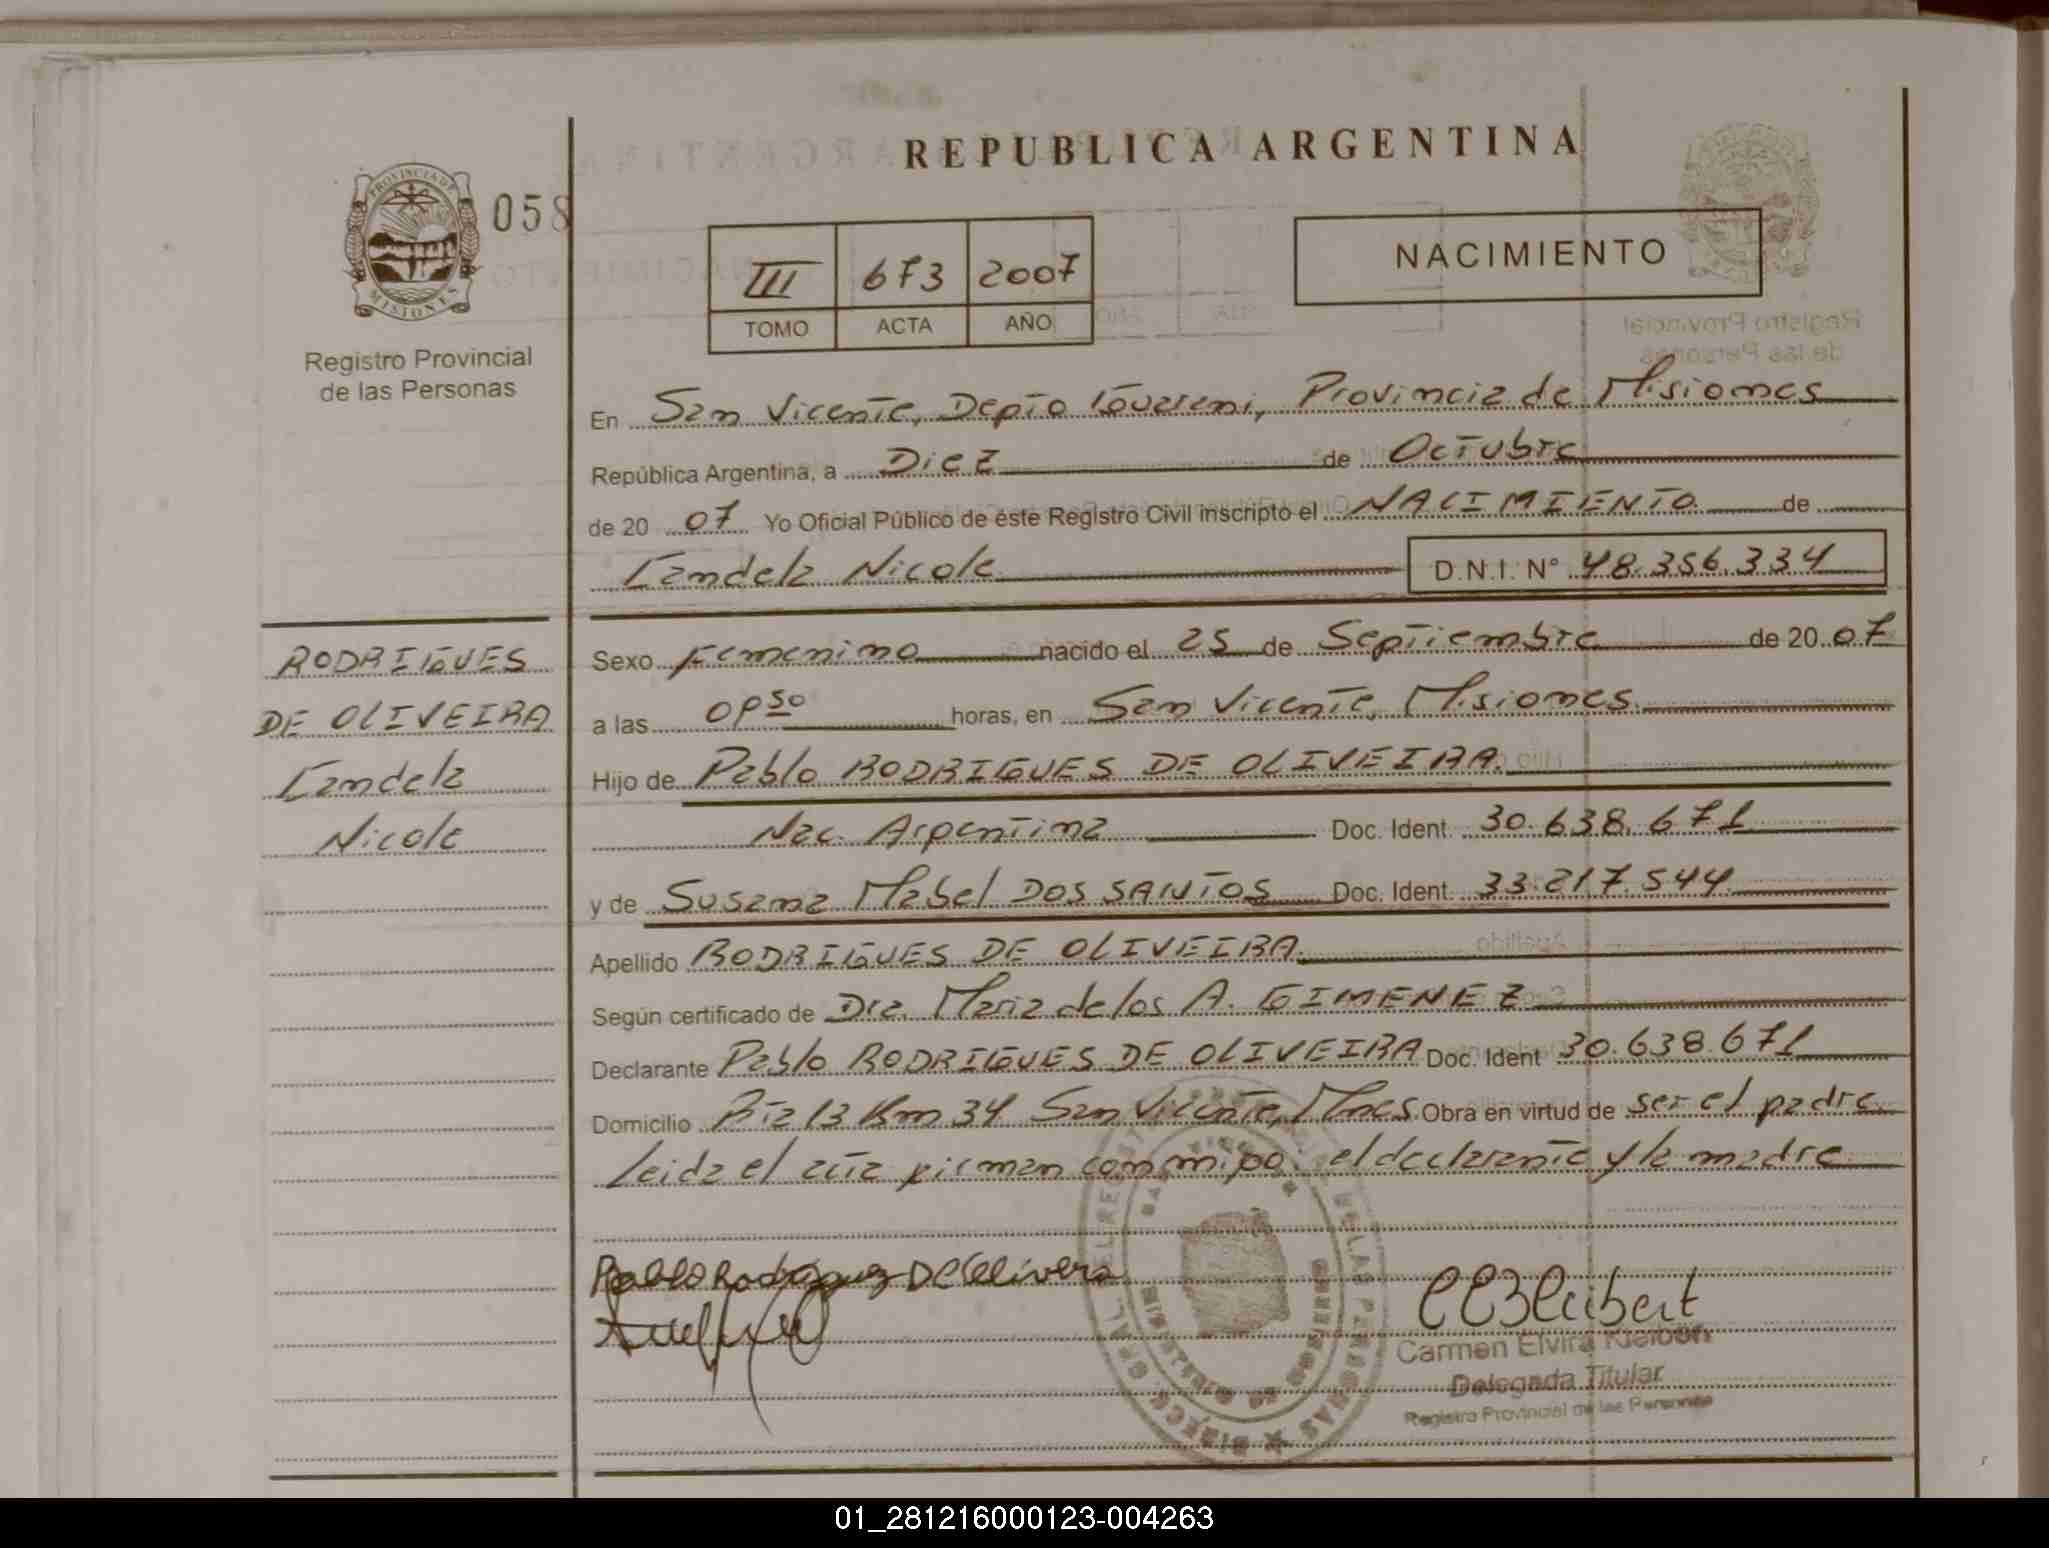 REPUBLICA ARGENTINA
PROVINCIA DE
MISIONES
058
Registro Provincial
de las Personas
III 673 2007
TOMO ACTA AÑO
NACIMIENTO
En San Vicente, Depto Guarani, Provincia de Misiones
República Argentina, a Diez de Octubre
de 20 07 Yo Oficial Público de éste Registro Civil inscripto el NACIMIENTO de
Candela Nicole D.N.I. N° 48.356.334
RODRIGUES
DE OLIVEIRA
Candela
Nicole
Sexo Femenino nacido el 25 de Septiembre de 20 07
a las horas, en San Vicente, Misiones
Hijo de Pablo RODRIGUES DE OLIVEIRA.
Nac. Argentina Doc. Ident. 30.638.671
y de Susana Mabel DOS SANTOS Doc. Ident. 33.217.544
Apellido RODRIGUES DE OLIVEIRA.
Según certificado de Dra. Maria de los A. GIMENEZ
Declarante Pablo RODRIGUES DE OLIVEIRA Doc. Ident 30.638.671
Domicilio Rta 13 Km 34 San Vicente, Mnes. Obra en virtud de ser el padre
Leida el acta firman conmigo: el declarante y la madre
Pablo Rodriguez De Olivera
Carmen Elvira
Delegada Titular
Registro Provincial de las Personas
01_281216000123-004263